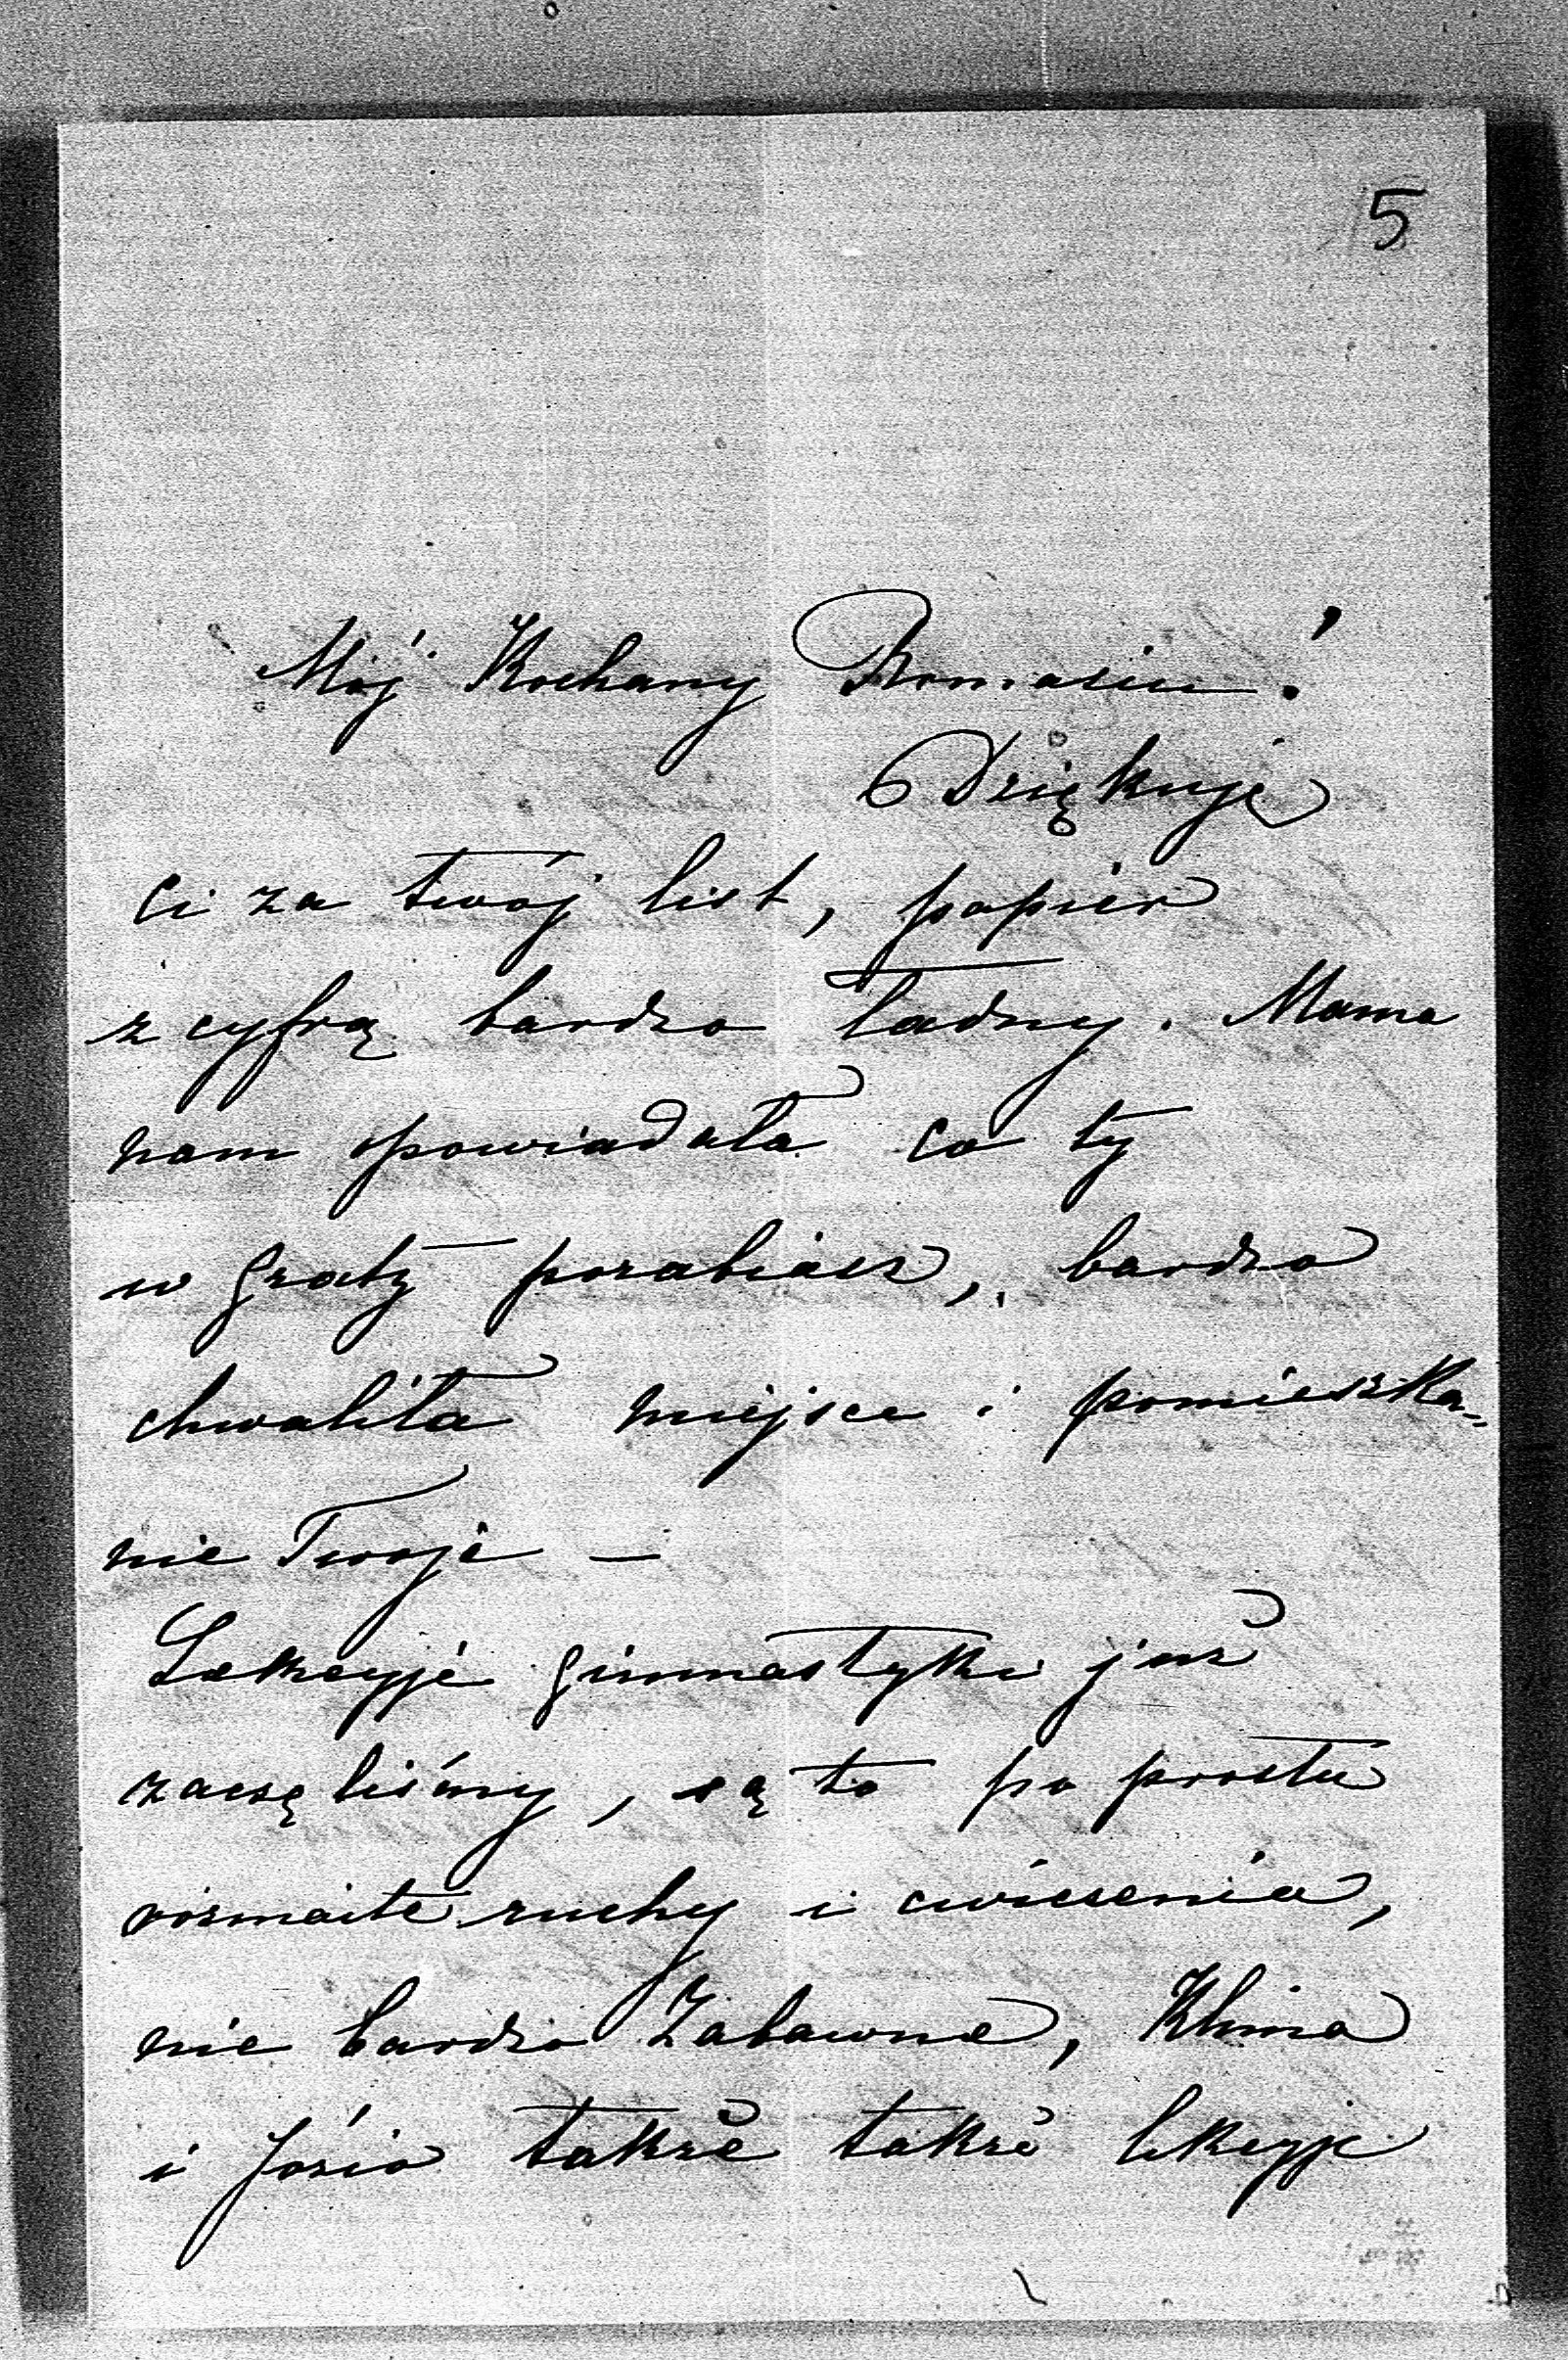 5
Mój Kochany Romasiu!
Dziękuję
Ci za twój list, papier
z cyfrą bardzo ładny. Mama
nam opowiadała co ty
w Gratz porabiasz, bardzo
chwaliła miejsce i pomieszka-
nie Twoje —
Lekcyje gimnastyki już
zaczęliśmy, są to po prostu
rozmaite ruchy i cwiczenia,
nie bardzo Zabawne, Klima
i Józio także także lekcyje